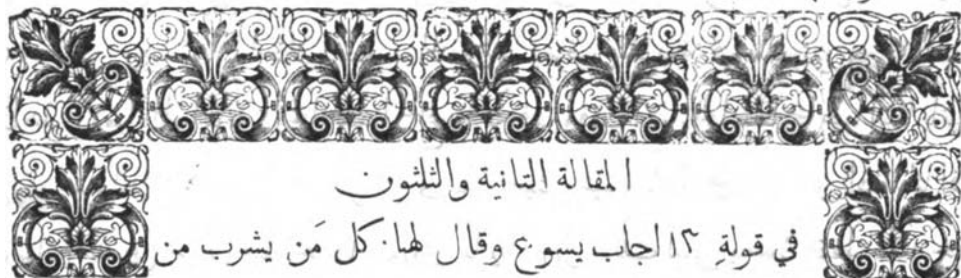 المقالة التانية والثلثون
في قولةِ ١٣ اجاب يسوع وقال لها. كل مَن يشرب من